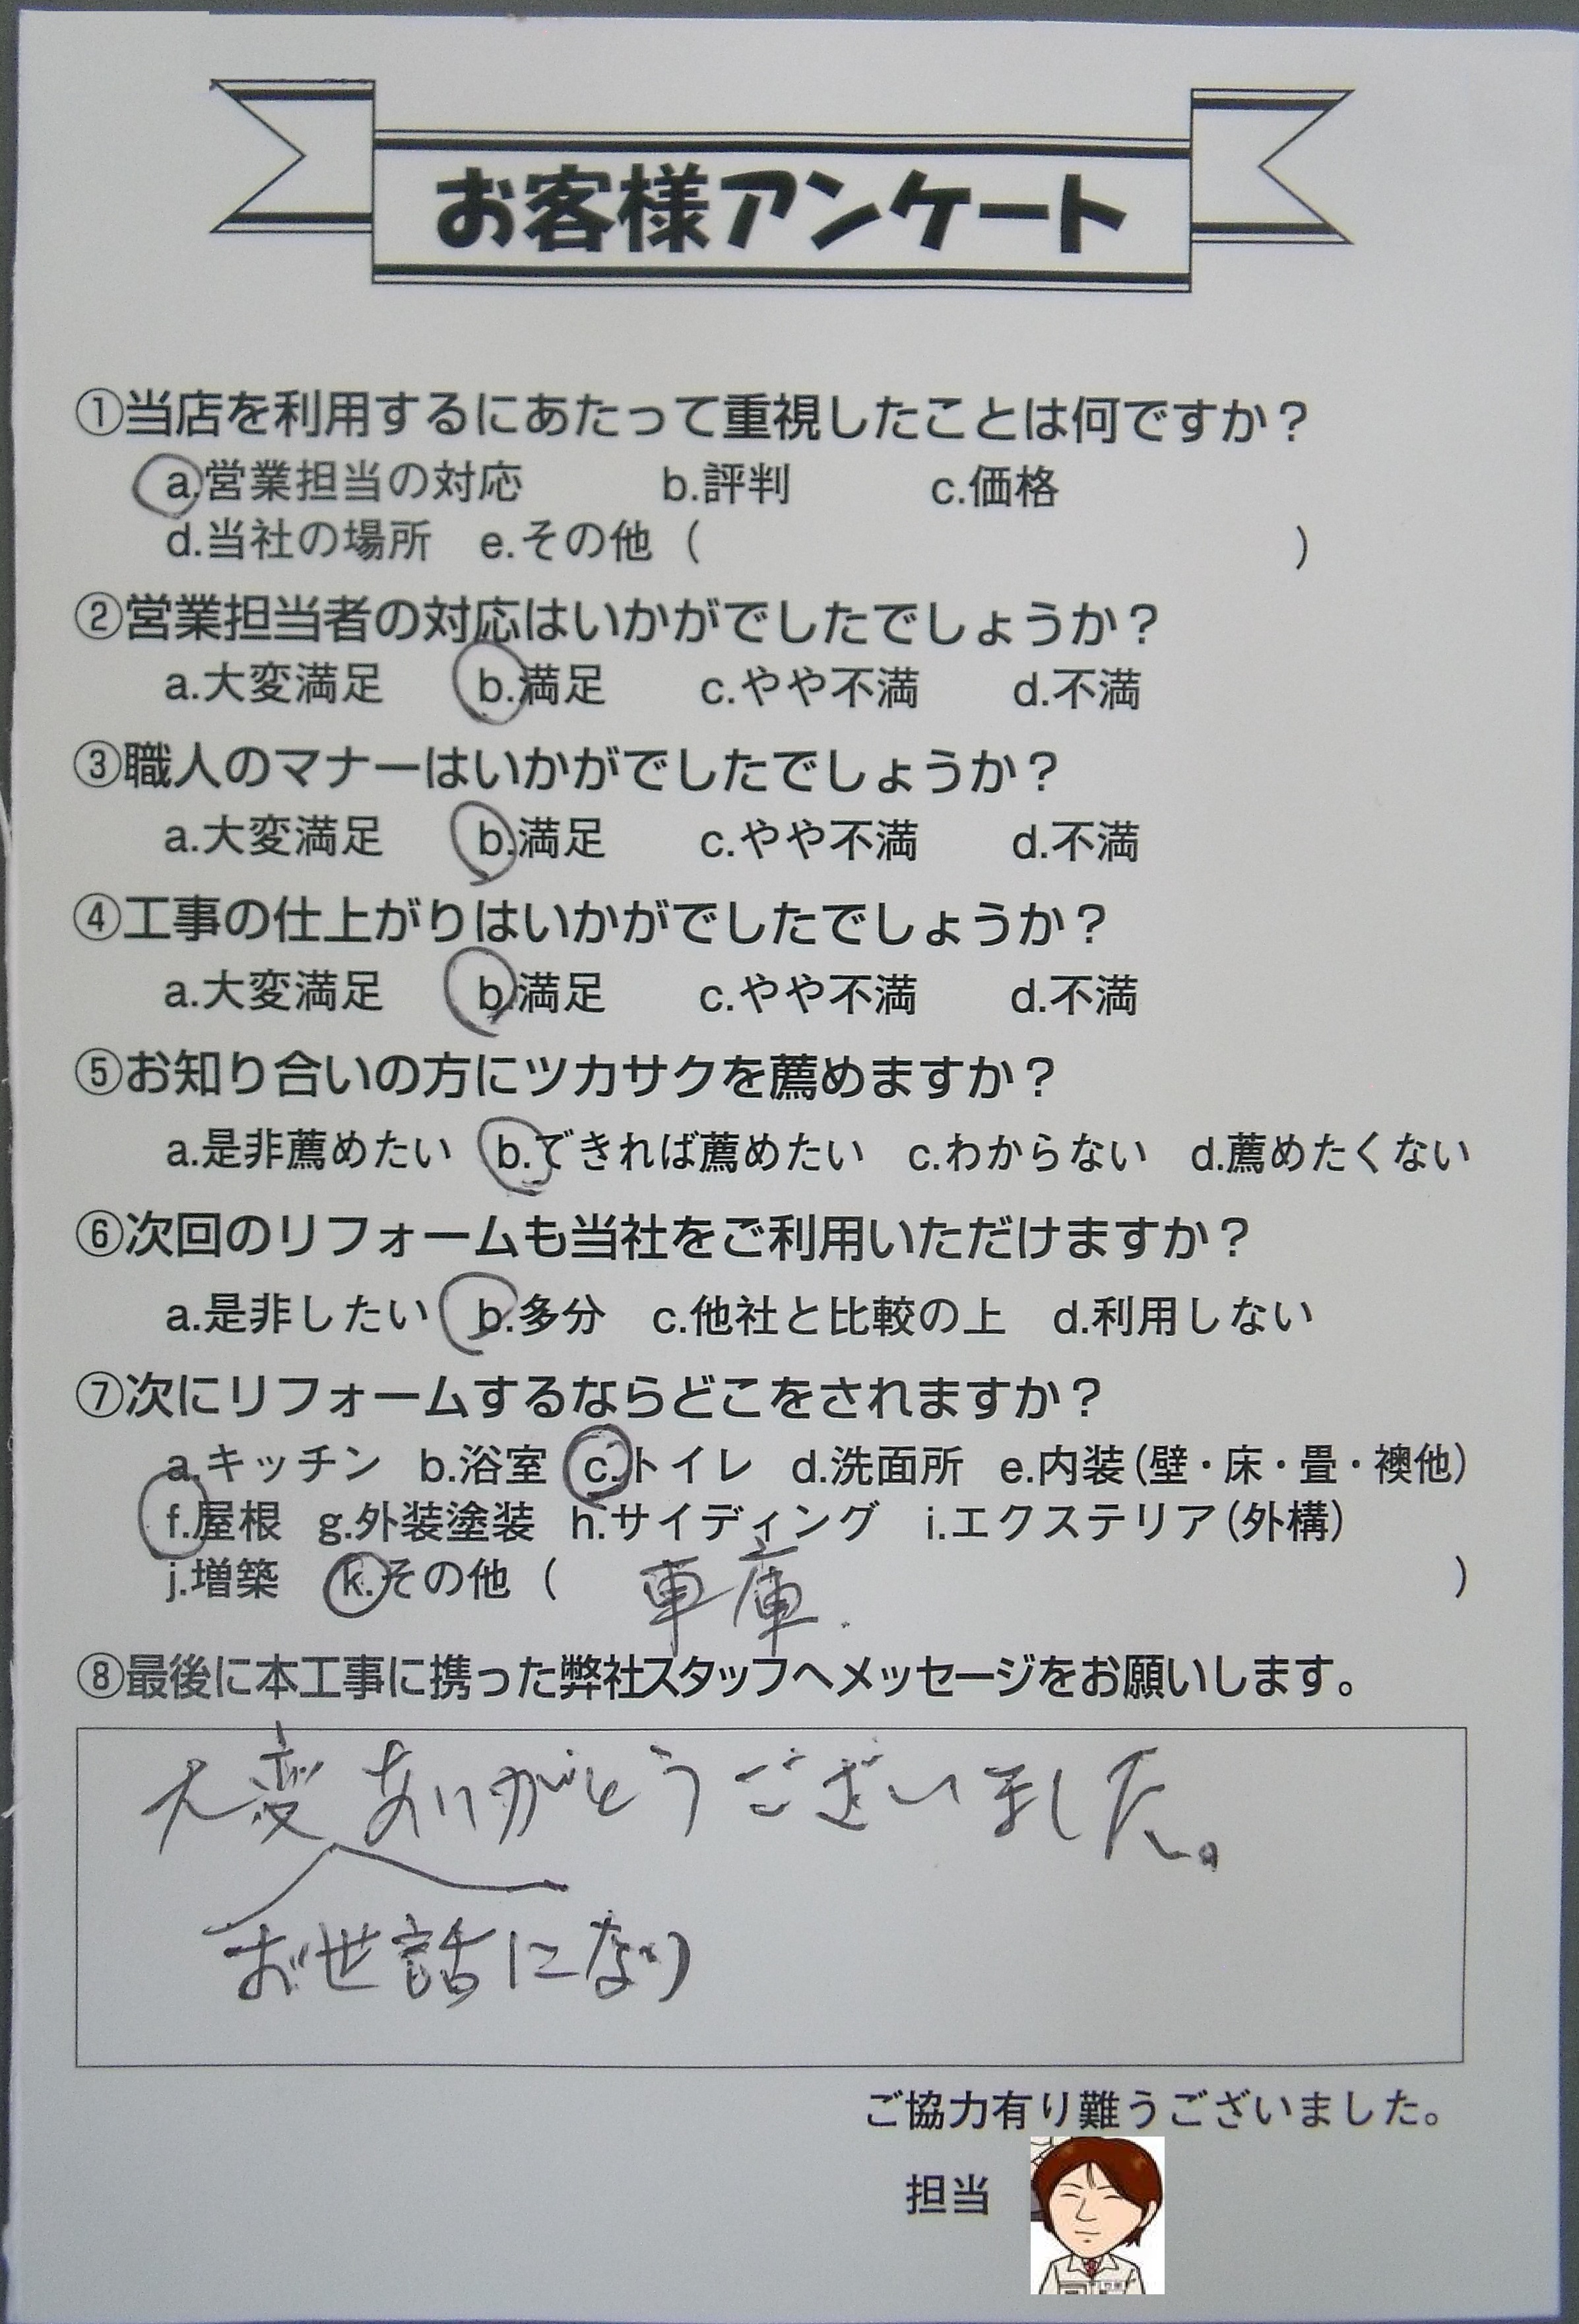 お客様アンケート
①当店を利用するにあたって重視したことは何ですか？
a.営業担当の対応 b.評判 c.価格
d.当社の場所 e.その他（ ）
②営業担当者の対応はいかがでしたでしょうか？
a.大変満足 b.満足 c.やや不満 d.不満
③職人のマナーはいかがでしたでしょうか？
a.大変満足 b.満足 c.やや不満 d.不満
④工事の仕上がりはいかがでしたでしょうか？
a.大変満足 b.満足 c.やや不満 d.不満
⑤お知り合いの方にツカサクを薦めますか？
a.是非薦めたい b.できれば薦めたい c.わからない d.薦めたくない
⑥次回のリフォームも当社をご利用いただけますか？
a.是非したい b.多分 c.他社と比較の上 d.利用しない
⑦次にリフォームするならどこをされますか？
a.キッチン b.浴室 c.トイレ d.洗面所 e.内装（壁・床・畳・襖他）
f.屋根 g.外装塗装 h.サイディング i.エクステリア（外構）
j.増築 k.その他（ 車庫. ）
⑧最後に本工事に携った弊社スタッフへメッセージをお願いします。
大変ありがとうございました。
お世話になり
ご協力有り難うございました。
担当